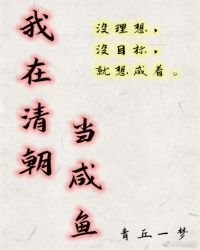 我在清朝
当咸鱼
没理想，
没目标，
就想咸着。
青丘一梦